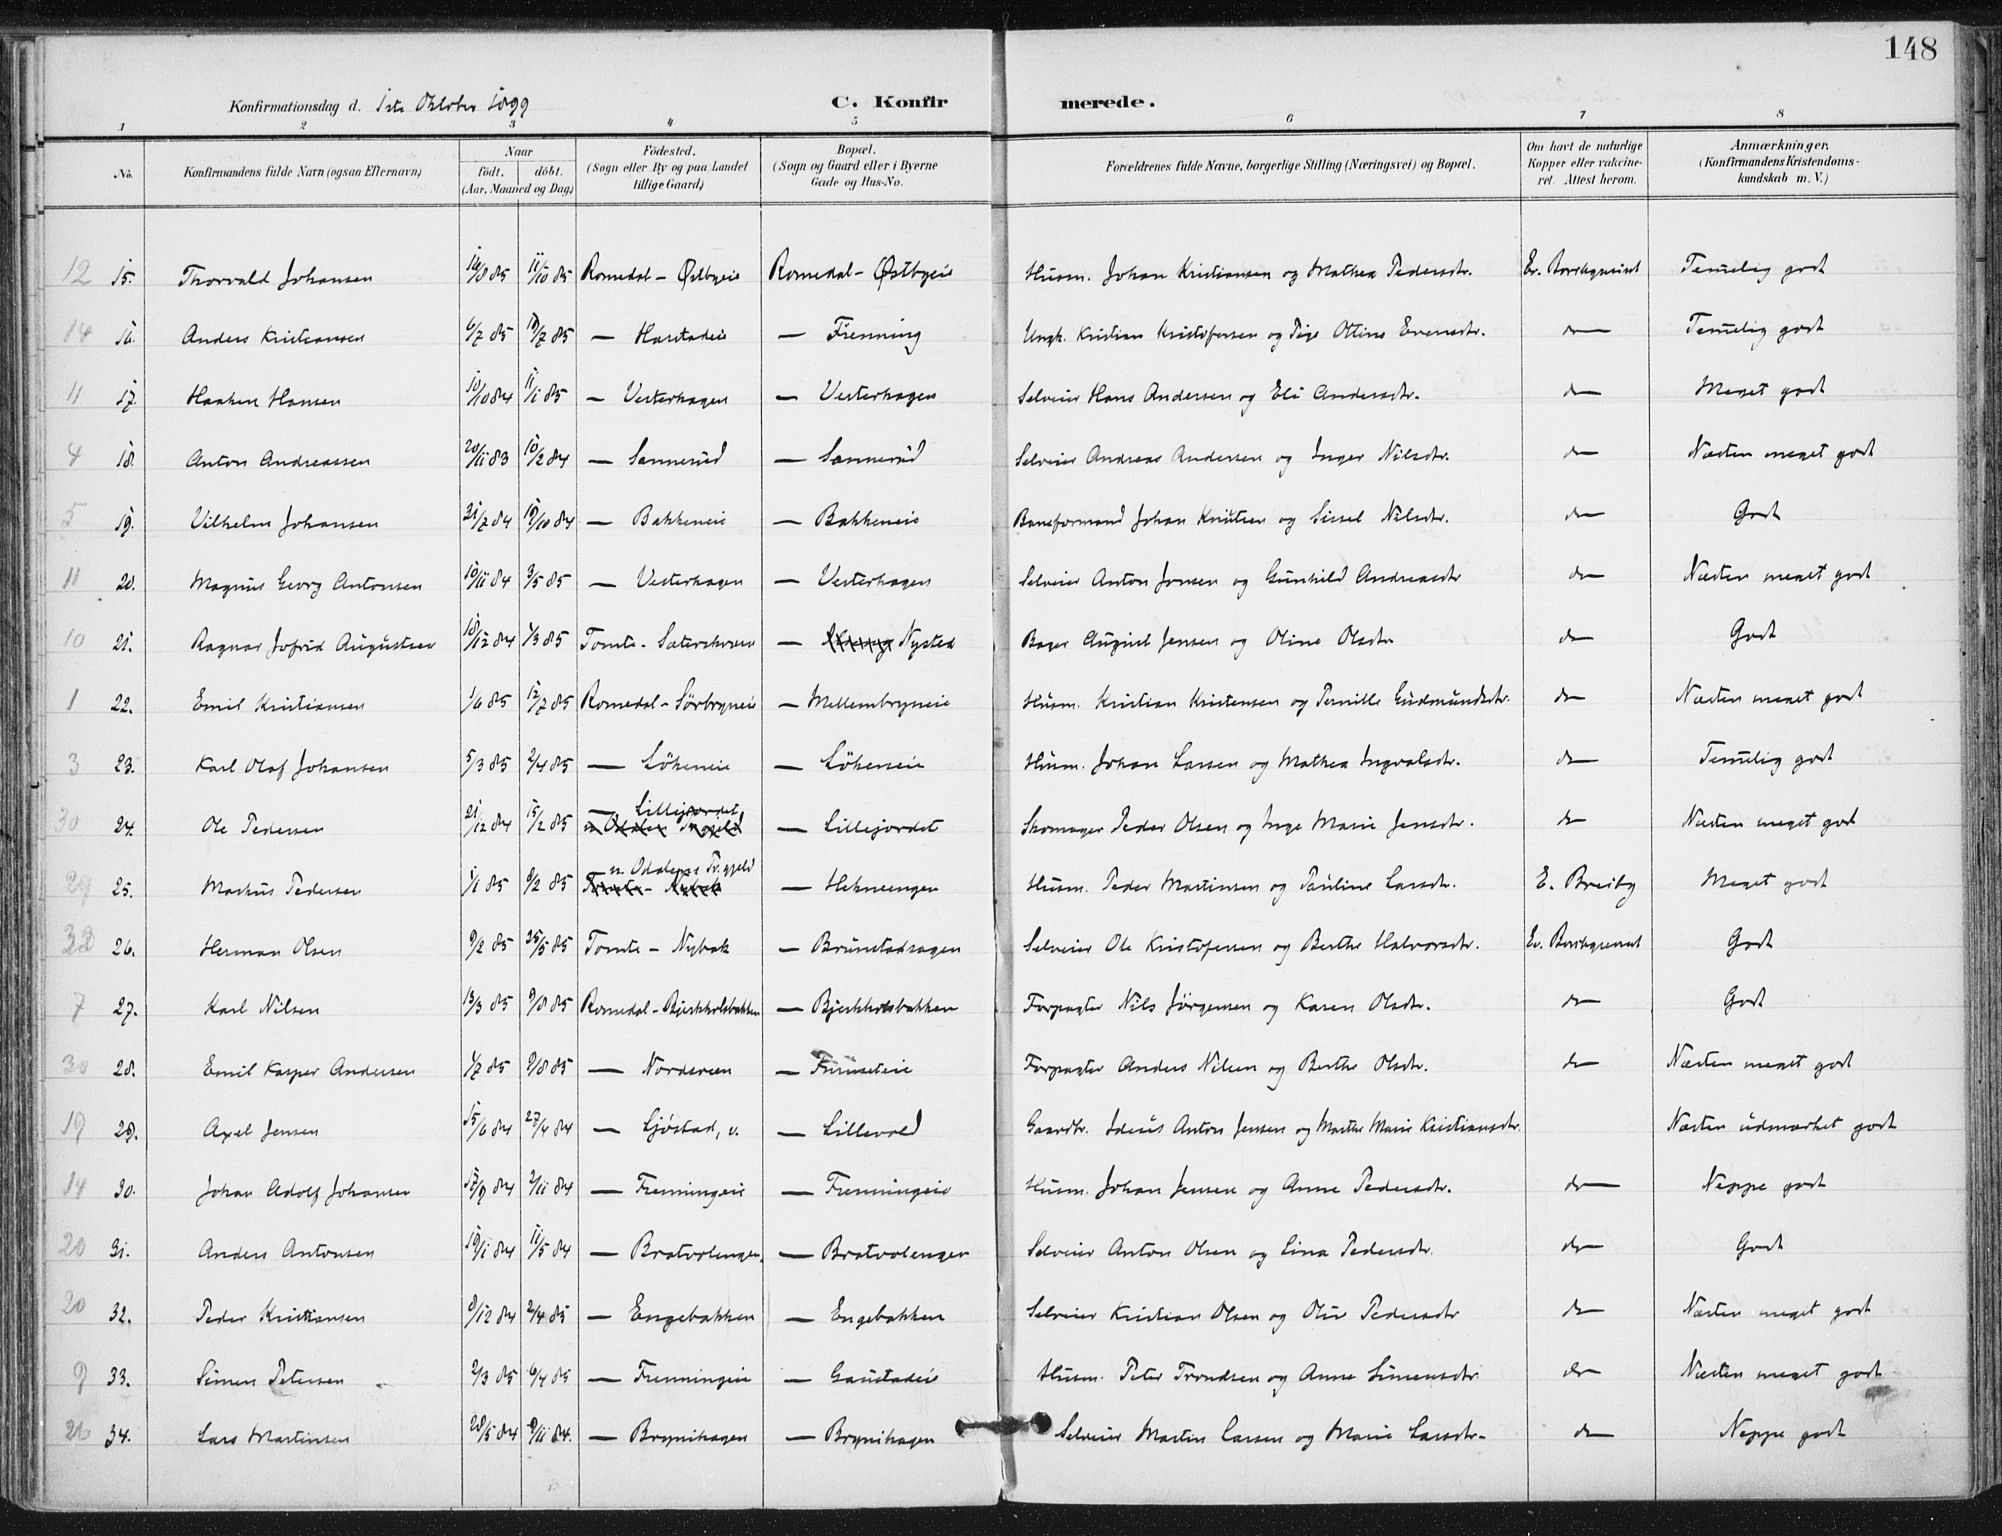 148
Konfirmationsdag d. 1ste Oktober 1899 C. Konfirmerede.
1 2 3 4 5 6 7 8
No. Konfirmandens fulde Navn (ogsaa Efternavn) Naar födt. döbt. (Aar, Maaned og Dag) Födested. (Sogn eller By og paa Landet tillige Gaard) Bopæl. (Sogn og Gaard eller i Byerne Gade og Hus-No. Forældrenes fulde Navne, borgerlige Stilling (Næringsvei) og Bopæl. Om havt de naturlige Kopper eller vakcineret. Attest herom. Anmærkninger. (Konfirmandens Kristendomskundskab m. V.)
12 15. Thorvald Johansen 16/8 85 11/10 85 Romedal - Østbyeie Romedal - Østbyeie Husm. Johan Kristiansen og Mathea Pedersdtr. Ev. Borchgrevink Temelig godt
14 16. Anders Kristiansen 6/7 85 19/7 85 — Harstadeie — Frenning Ungk. Kristian Kristofersen og Pige Ottine Evensdtr. do Temelig godt
11 17. Haaken Hansen 10/10 84 11/1 85 — Vesterhagen — Vesterhagen Selveier Hans Andersen og Eli Andersdtr. do Meget godt
4 18. Anton Andreassen 20/11 83 10/2 84 — Sannerud — Sannerud Selveier Andreas Andersen og Inger Nilsdtr. do Næsten meget godt
5 19. Vilhelm Johansen 31/7 84 19/10 84 — Bakkeneie — Bakkeneie Baneformand Johan Knutsen og Sissel Nilsdtr. do Godt
11 20. Magnus Georg Antonsen 10/11 84 3/5 85 — Vesterhagen — Vesterhagen Selveier Anton Jensen og Gunhild Andreasdtr do Næsten meget godt
10 21. Ragnar Jofrid Augustsen 18/12 84 1/3 85 Tomte - Sæterskoven — Nysted Bager August Jensen og Oline Olsdtr. do Godt
1 22. Emil Kristiansen 1/6 85 12/7 85 Romedal - Sörbryneie — Mellembryneie Husm. Kristian Kristensen og Pernille Gudmundsdtr. do Næsten meget godt
3 23. Karl Olaf Johansen 5/3 85 2/4 85 — Lökeneie — Lökeneie Husm. Johan Larsen og Mathea Ingvalsdtr. do Temelig godt
30 24. Ole Pedersen 21/12 84 15/2 85 — Lillejordet — Lillejordet Skomager Peder Olsen og Inge Marie Jensdtr. do Næsten meget godt
29 25. Markus Pedersen 1/1 85 8/2 85 n. Odalens Pr.gjeld — Heknengen Husm. Peder Martinsen og Pauline Larsdtr. E. Breiby Meget godt
32 26. Herman Olsen 9/2 85 25/5 85 Tomte - Nybak — Brunstadsagen Selveier Ole Kristofersen og Berthe Halvorsdtr. Ev. Borchgrevink Godt
7 27. Karl Nilsen 13/3 85 9/8 85 Romedal - Bjerkholsbakken — Bjerkholsbakken Forpagter Nils Jörgensen og Karen Olsdtr. do Godt
30 28. Emil Kasper Andersen 1/7 85 9/8 85 — Nordsveen — Furuseteie Forpagter Anders Nilsen og Berthe Olsdtr. do Næsten meget godt
19 29. Axel Jensen 15/6 84 27/4 84 — Ljøstad, v. — Lillevold Gaardbr. Anton Jensen og Marthe Marie Kristiansdtr. Næsten udmærket godt
14 30. Johan Adolf Johansen 17/9 84 2/11 84 — Frenningeie — Frenningeie Husm. Johan Jensen og Anne Pedersdtr. do Neppe godt
20 31. Anders Antonsen 19/1 84 11/5 84 — Bratvolengen — Bratvolengen Selveier Anton Olsen og Lina Pedersdtr. do Godt
20 32. Peder Kristiansen 8/12 84 2/4 85 — Engebakken — Engebakken Selveier Kristian Olsen og Oluv Pedersdtr do Næsten meget godt
9 33. Simen Petersen 2/3 85 6/4 85 — Frenningeie — Gaustadeie Husm. Peter Trondsen og Anne Simensdtr. do Næsten meget godt
26 34. Lars Martinsen 28/5 84 9/11 84. — Brynihagen — Brynihagen Selveier Martin Larsen og Marie Larsdtr. do Neppe godt